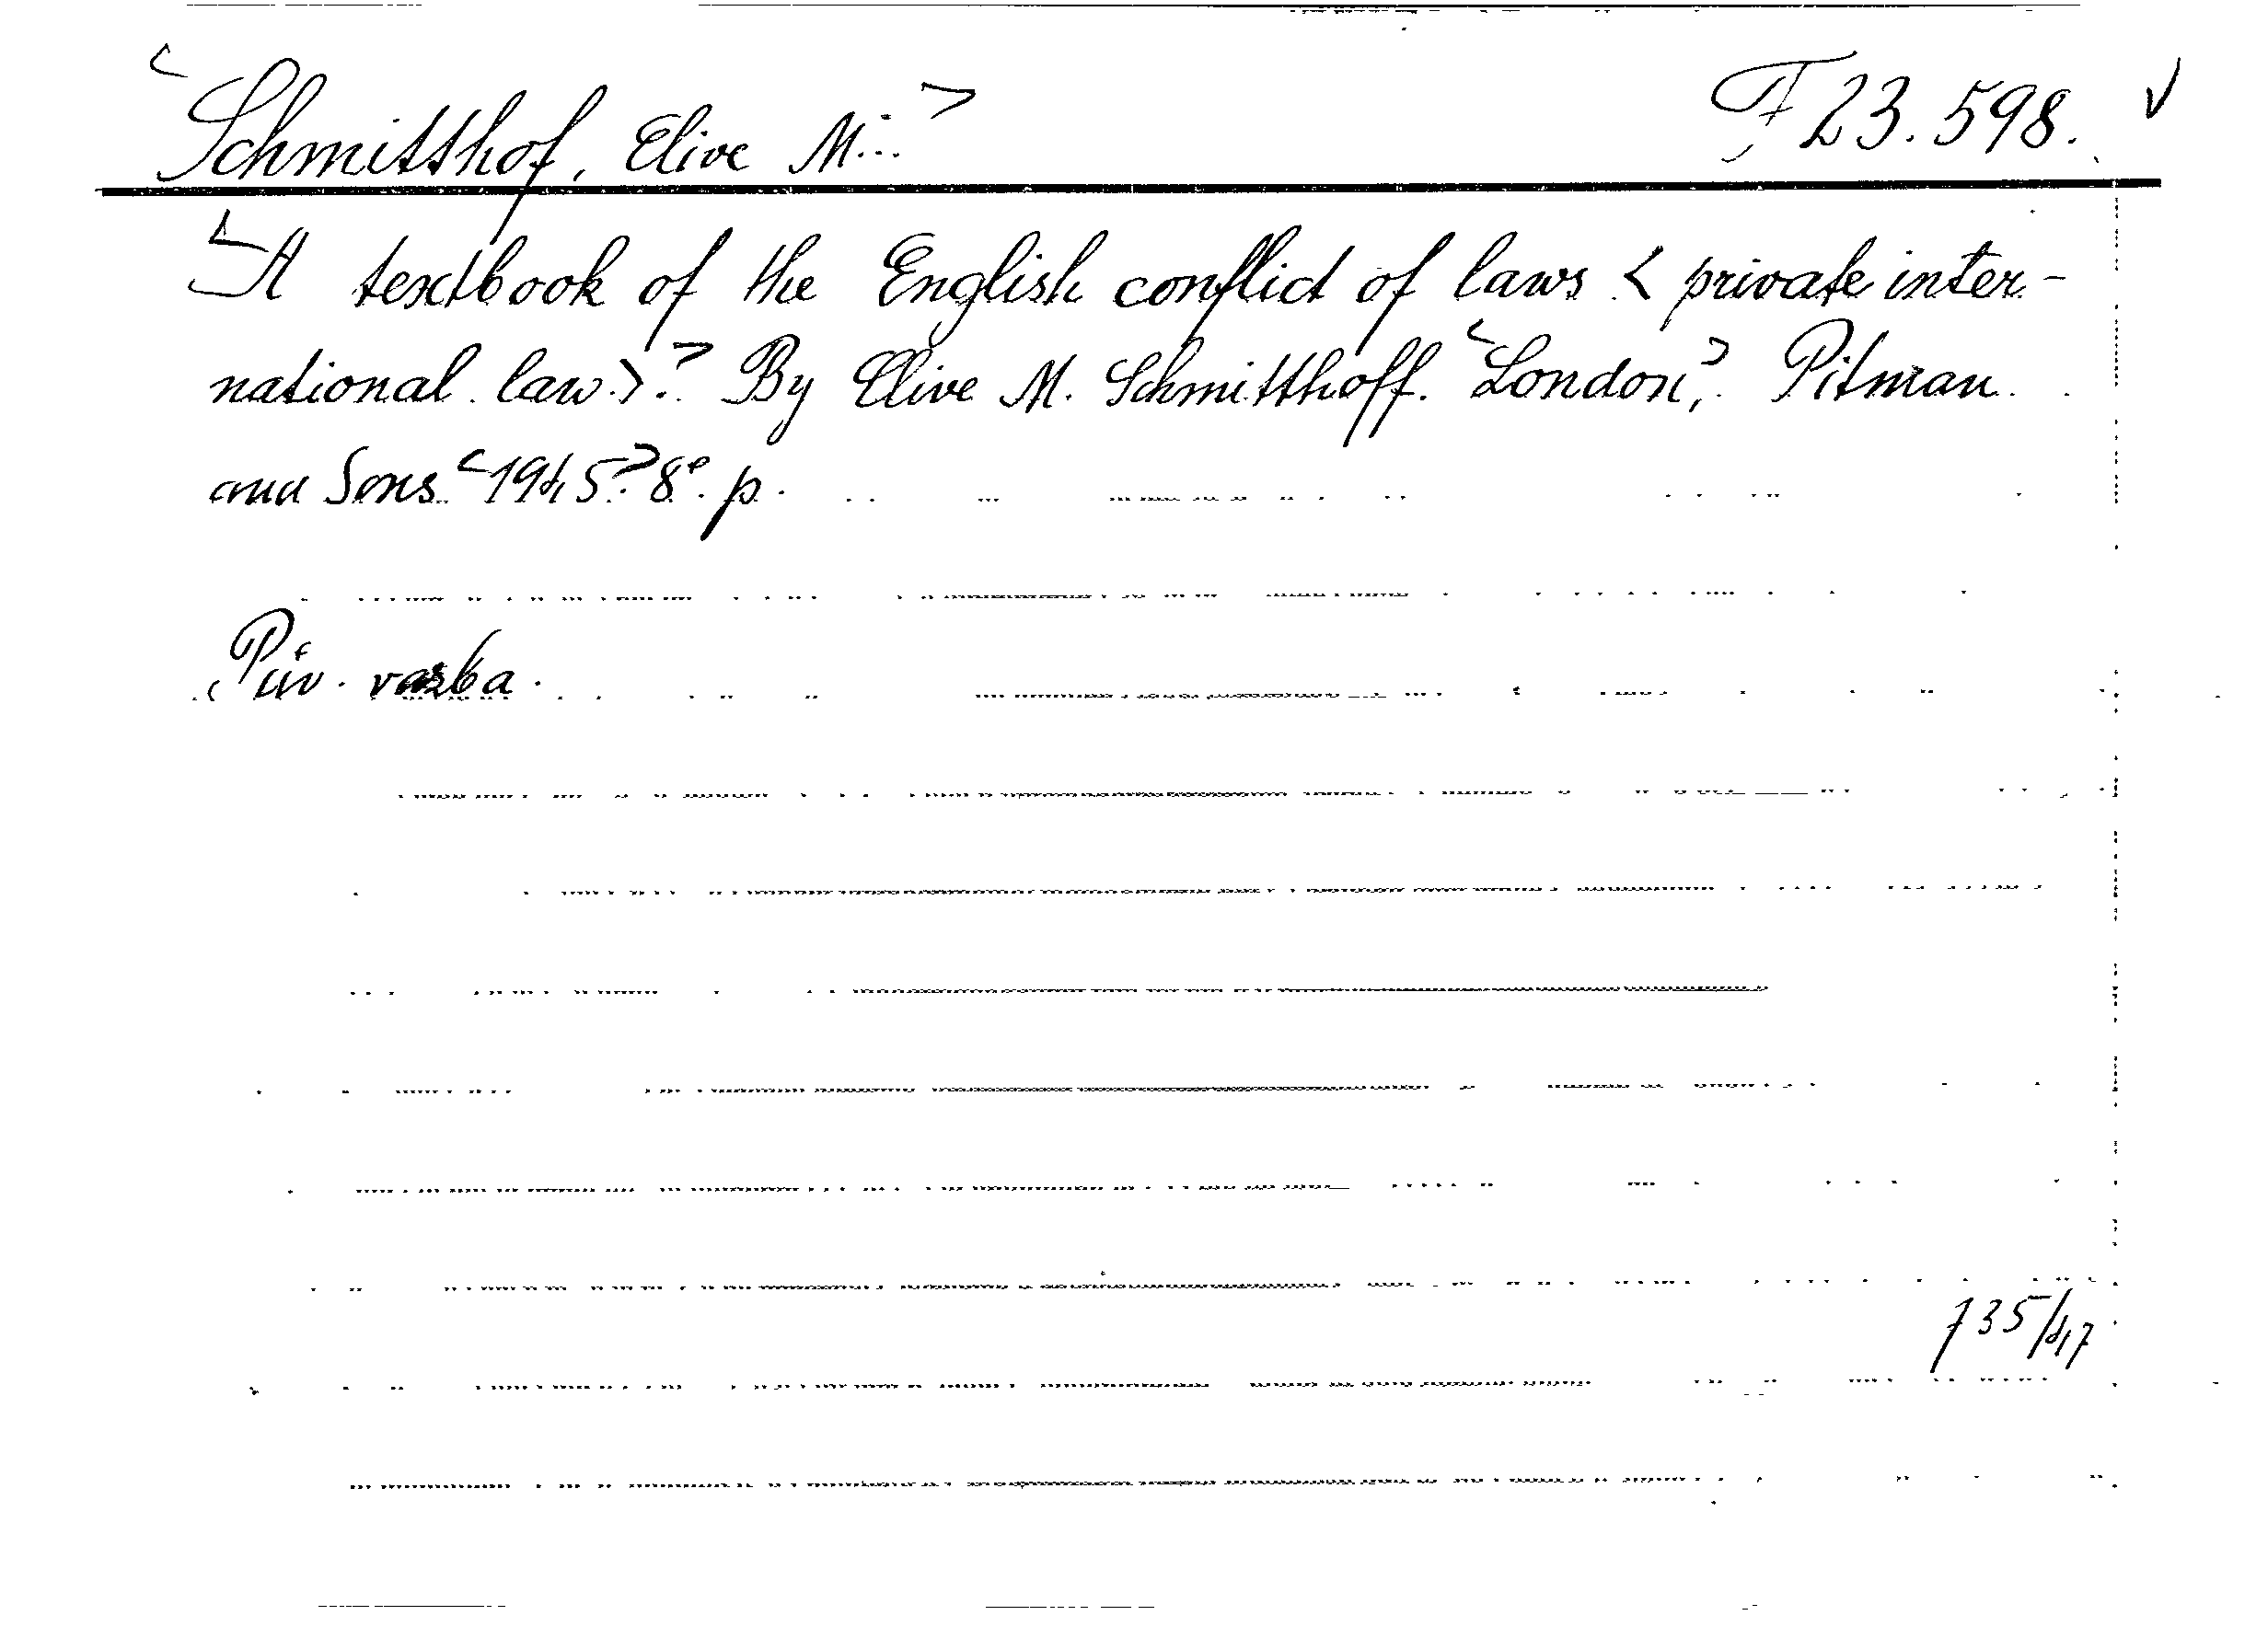 Schmitthof, Clive M... F 23.598.
A textbook of the English conflict of laws < private inter-
national law.>. By Clive M. Schmitthoff. London, Pitman
and Sons. 1945. 8°. p.
Pův. vazba.
735/47